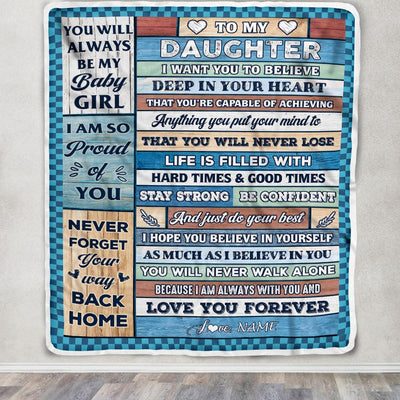 YOU WILL
ALWAYS
BE MY
Baby
GIRL
I AM SO
Proud
of
YOU
NEVER
FORGET
Your
way
BACK
HOME
TO MY
DAUGHTER
I WANT YOU TO BELIEVE
DEEP IN YOUR HEART
THAT YOU'RE CAPABLE OF ACHIEVING
Anything you put your mind to
THAT YOU WILL NEVER LOSE
LIFE IS FILLED WITH
HARD TIMES & GOOD TIMES
STAY STRONG BE CONFIDENT
And just do your best
I HOPE YOU BELIEVE IN YOURSELF
AS MUCH AS I BELIEVE IN YOU
YOU WILL NEVER WALK ALONE
BECAUSE I AM ALWAYS WITH YOU AND
LOVE YOU FOREVER
Love, NAME